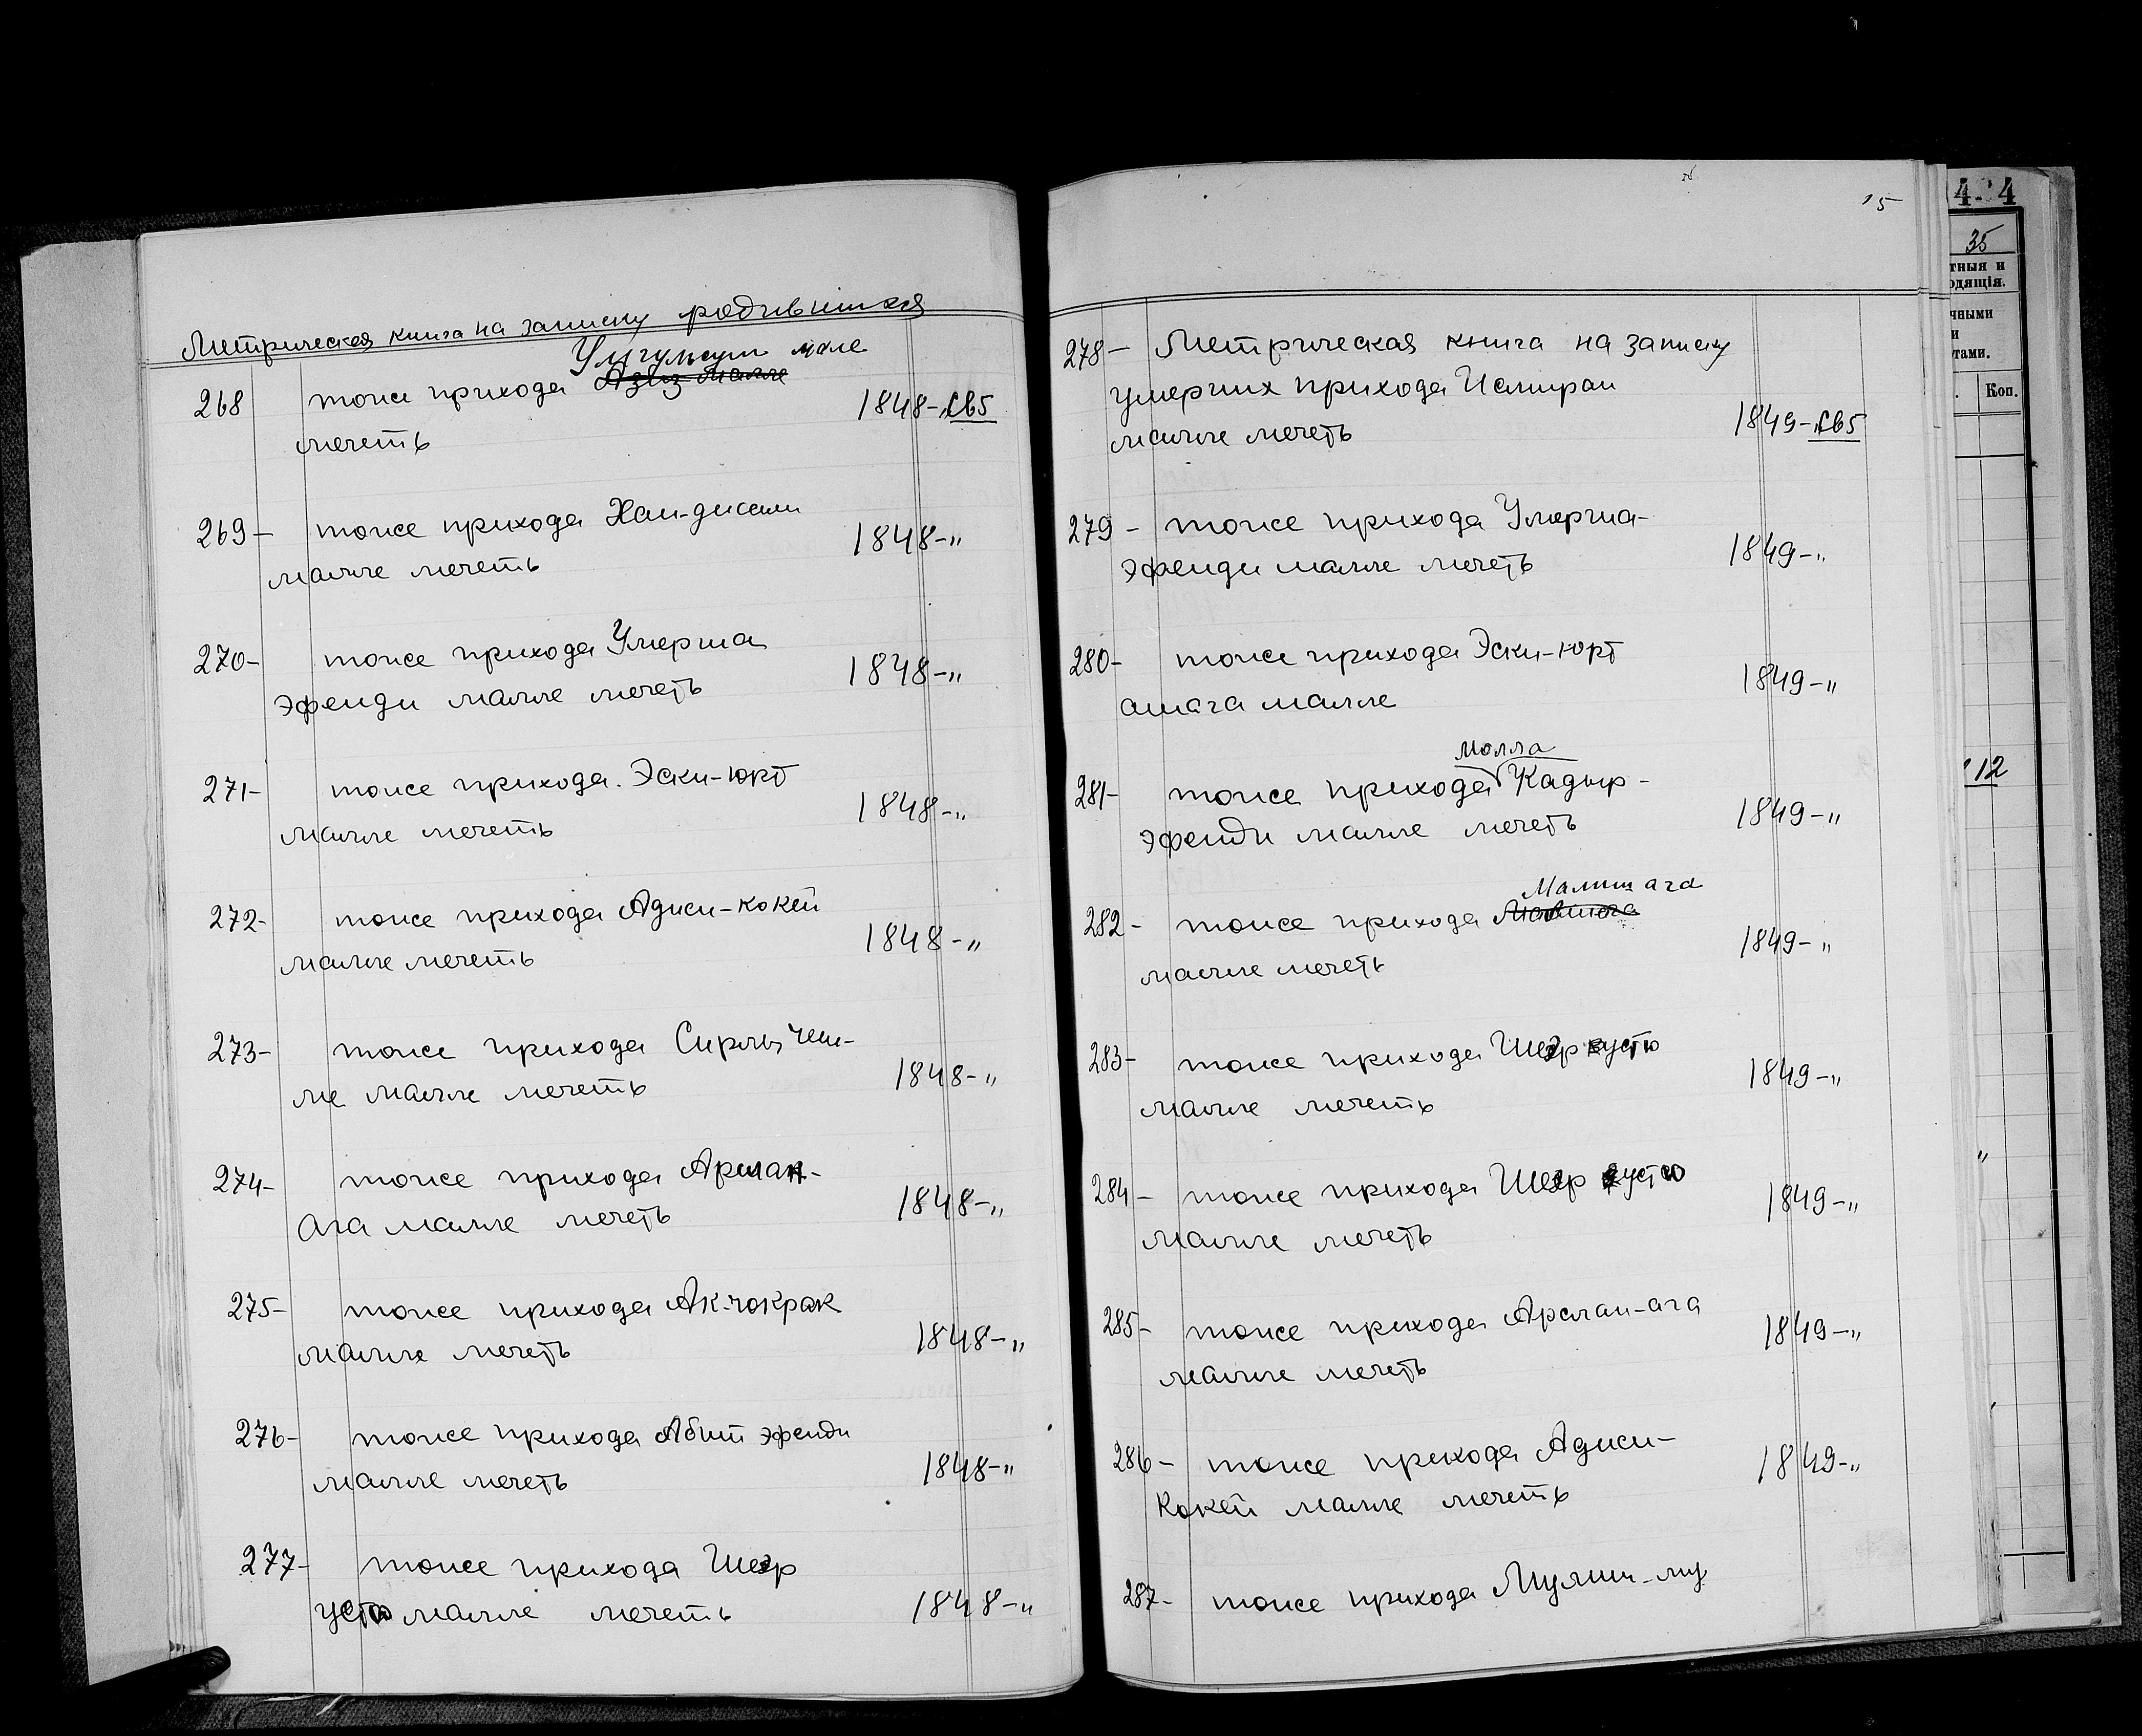 Метрическая книга на записку родившихся
Умгульсум мале
268 тоже прихода Азиз малле 1848-св5
мечеть
269- тоже прихода Хан-джами 1848-"
малле мечеть
270- тоже прихода Умерша 1848-"
эфенди малле мечеть
271- тоже прихода. Эски-юрт 1848-"
малле мечеть
272- тоже прихода Аджи-кокей 1848-"
малле мечеть
273- тоже прихода Сирлы чеш- 1848-"
ме малле мечеть
274- тоже прихода Арслан- 1848-"
Ага малле мечеть
275- тоже прихода Ак-чокрак 1848-"
малле мечеть
276- тоже прихода Абит эфенди 1848-"
малле мечеть
277- тоже прихода Шеэр
устю малле мечеть 1848-"
15
278- Метрическая книга на записку
умерших прихода
малле мечеть 1849-св5
279- тоже прихода Умерша- 1849-"
эфенди малле мечеть
280- тоже прихода Эски-юрт 1849-"
ашага малле
молла
281- тоже прихода Кадыр- 1849-"
эфенди малле мечеть
ага
282- тоже прихода 1849-"
малле мечеть
283- тоже прихода Шеэр устю 1849-"
малле мечеть
284- тоже прихода Шеэр устю 1849-"
малле мечеть
285- тоже прихода Арслан-ага 1849-"
малле мечеть
286- тоже прихода Аджи- 1849-"
Кокей малле мечеть
287- тоже прихода
4
35
тныя и
одящія.
чными
и
тами.
Коп.
12
"